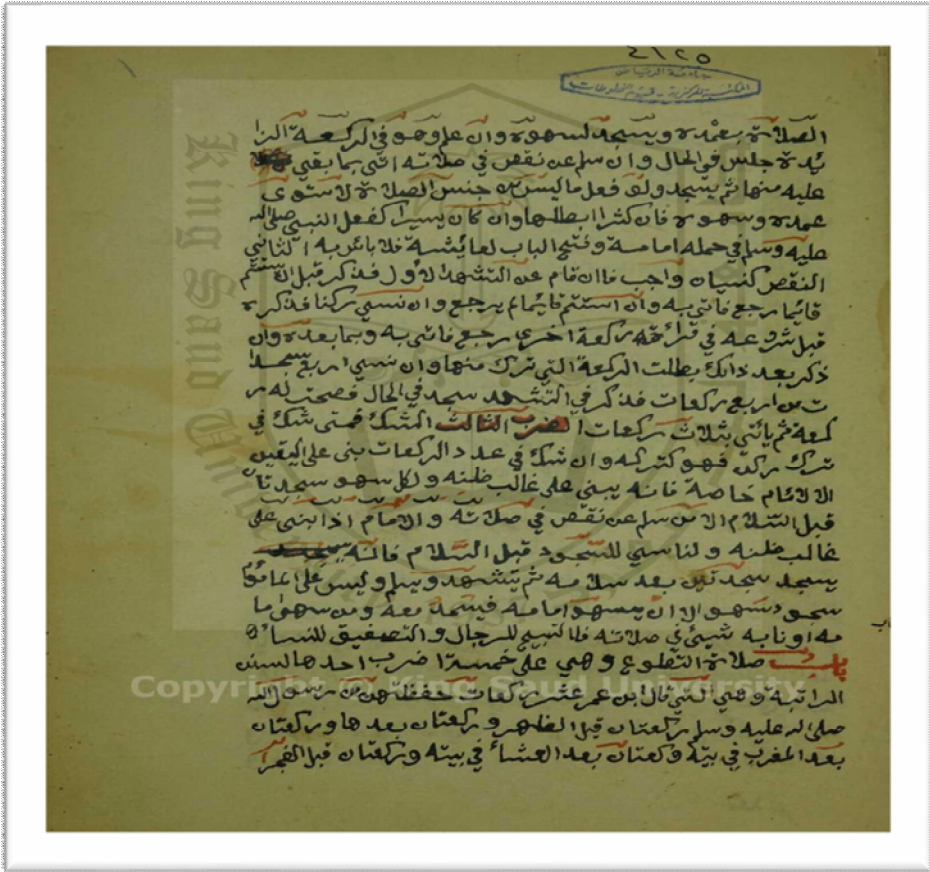 ٤١٢٥
جامعة الرياض
المكتبة المركزية - قسم المخطوطات
الصلاة بعمده ويسجد لسهوه وان علم وهو في الركعة الزا
ئدة جلس في الحال وان سلم عن نقص في صلاته اتى بما بقي
عليه منها ثم يسجد ولو فعل ما ليس من جنس الصلاة لاستوى
عمده وسهوه فان كثر ابطلها وان كان يسيرا كفعل النبي صلى الله
عليه وسلم في حمله امامة وفتح الباب لعايشة فلا بائس به الثاني
النقص كنسيان واجب فاان قام عن التشهد الاول فذكر قبل ان يستتم
قائيما رجع فاتى به وان استتم قايما لم يرجع وان نسي ركنا فذكره
قبل شروعه في قرائة ركعة اخرى رجع فاتى به وبما بعده وان
ذكر بعد ذالك بطلت الركعة التي ترك منها وان نسي اربع سجدا
ت من اربع ركعات فذكر في التشهد سجد في الحال فصحت له ر
كعة ثم يائتي بثلاث ركعات الضرب الثالث الشك فمتى شك في
ترك ركن فهو كتركه وان شك في عدد الركعات بنى على اليقين
الا الامام خاصة فانه يبني على غالب ظنه ولكل سهو سجدتان
قبل السلام الا من سلم عن نقص في صلاته والامام اذا بنى على
غالب ظنه ولناسي للسجود قبل السلام فانه يسجد
يسجد سجدتين بعد سلامه ثم يتشهد ويسلم وليس على الماموم
سجود سهو الا ان يسهو امامه فيسجد معه ومن سهى اما
مه او نابه شيئ في صلاته فالتسبيح للرجال والتصفيق للنسائ
باب صلاة التطوع وهي على خمسة اضرب احدها السنن
الراتبة وهي التي قال ابن عمر عشر ركعات حفظتهن من رسول الله
صلى الله عليه وسلم ركعتان قبل الظهر وركعتان بعدها وركعتان
بعد المغرب في بيته وركعتان بعد العشائ في بيته وركعتان قبل الفجر
King Saud University
Copyright © King Saud University